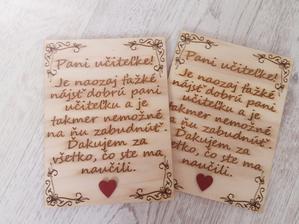 Pani učiteľke!
Je naozaj ťažké
nájsť dobrú pani
učiteľku a je
takmer nemožné
na ňu zabudnúť.
Ďakujem za
všetko, čo ste ma
naučili.
Pani učiteľke!
Je naozaj ťažké
nájsť dobrú pani
učiteľku a je
takmer nemožné
na ňu zabudnúť.
Ďakujem za
všetko, čo ste ma
naučili.